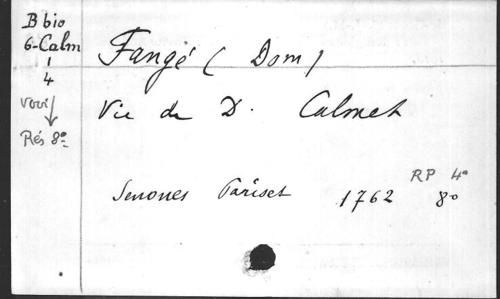 B bio
6-Calm
1
4
voir
Rés 8º
Fangé (Dom)
Vie de D. Calmet
Senones Pariset 1762 8º
RP 4º